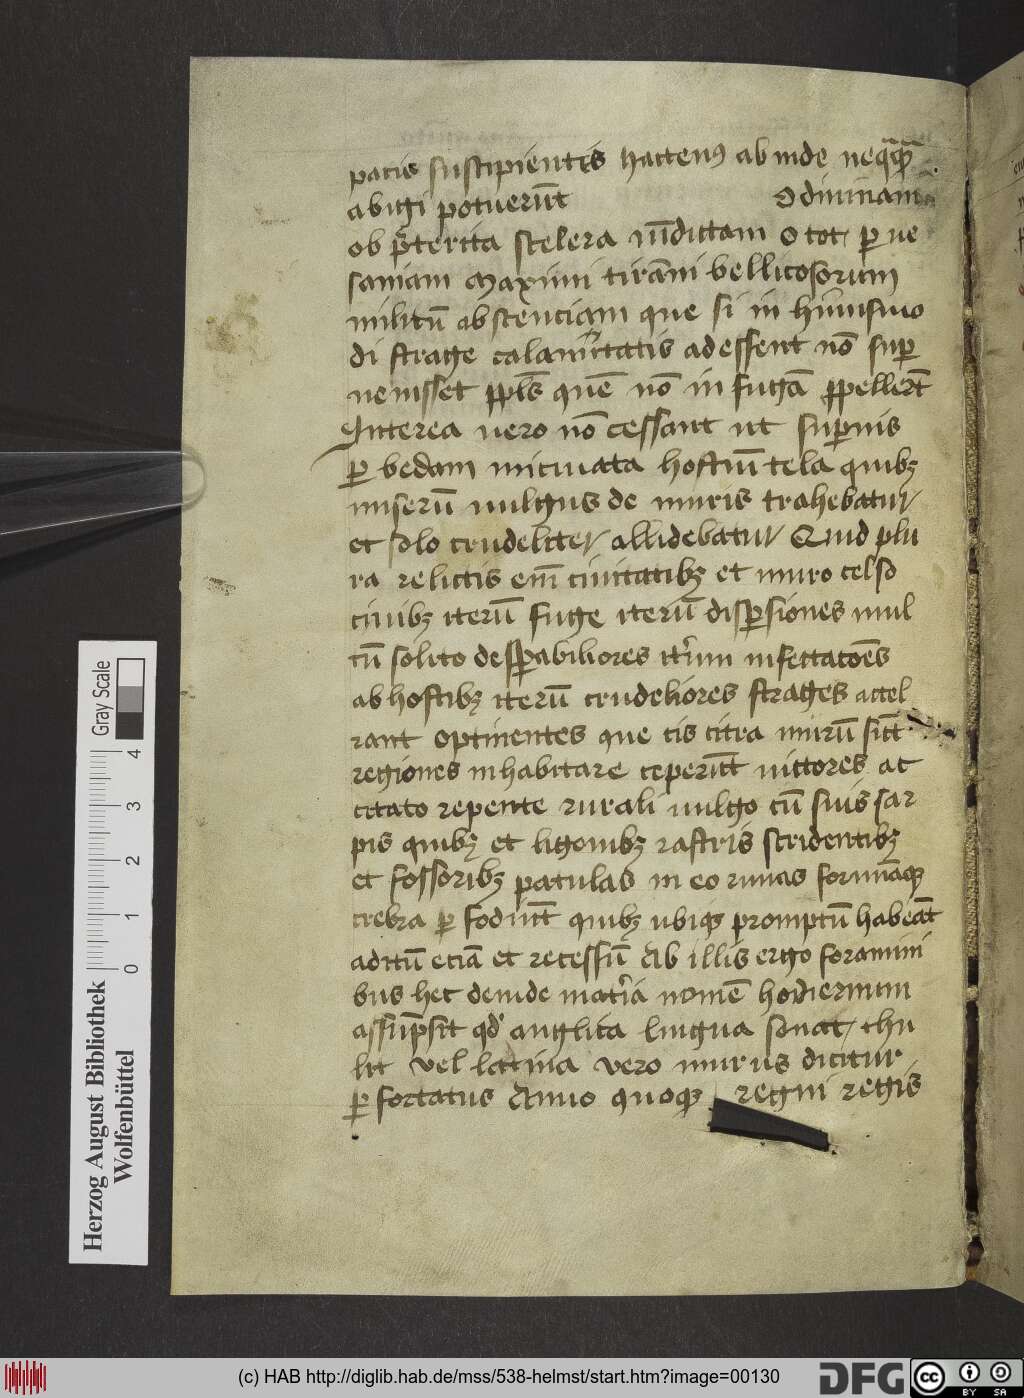 pacis suscipientis hacten9 ab inde neq̄q̄
abigi potuerūt O diuinam
ob p̄terita scelera uīdictam o tot p ue
saniam Maximi tirāni bellicosorum
militū abscenciam que si in huiusmo
di strage calamitatis adessent nō sup
uenisset pplīs quē nō in fugā ppellerēt
Interea uero nō cessant ut supnis
p bedam uncinata hostiū tela quibꝫ
miserū uulgus de muris trahebatur
et solo crudeliter allidebatur Quid plu
ra relictis em̄ ciuitatibꝫ et muro celso
ciuibꝫ iterū fuge iterū dispsiones mul
tū solito despabiliores itim insectacōes
ab hostibꝫ iterū crudeliores strages accel
rant Optinentes que cis citra murū
regiones inhabitare ceperūt uictores ac
citato repente rurali uulgo cū suis sar
pis quibꝫ et ligonibꝫ rastris stridentibꝫ
et fossoribꝫ patulas in eo rimas
crebra p fodiūt quibꝫ ubiqꝫ promptū habeāt
aditū eciā et recessū Ab illis ergo foramini
bus hec deinde matia nomē hodiernum
assūpsit qd anglica lingua sonat thu
lit vel latina vero murus dicitur
p foratus Anno quoqꝫ regni regis
Herzog August Bibliothek
Wolfenbüttel
Gray Scale
0 1 2 3 4
(c) HAB http://diglib.hab.de/mss/538-helmst/start.htm?image=00130
DFG
cc
BY SA